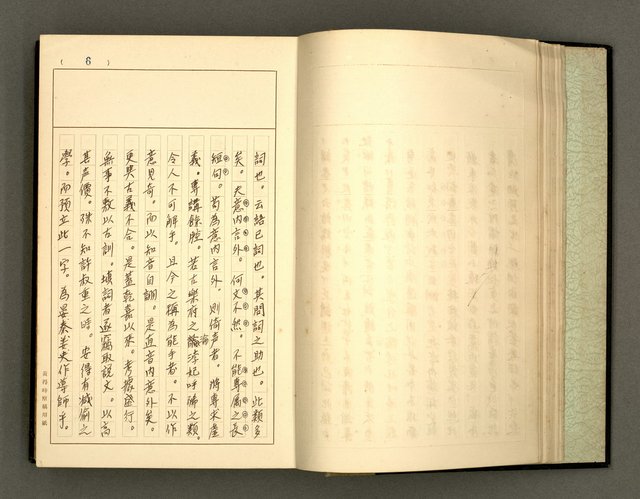 ( 6 )
詞也。云語已詞也。其間詞之助也。此類多
矣。夫意內言外。何文不然。不能專属之長
短句。苟為意內言外。則倚聲者。將專求虛
義。專講餘腔。若古樂府之 呼豨之類。
令人不可解乎。且今之稱為能手者。不以作
意見奇。而以知音自詡。是直音內意外矣。
更與古義不合。是蓋乾嘉以來。考據盛行。
無事不敷以古訓。填詞者遂竊取說文。以高
其声價。殊不知許叔重之時。安得有減偷之
學。而預立此一字。為晏秦姜史作導師乎。
黃得時原稿用紙